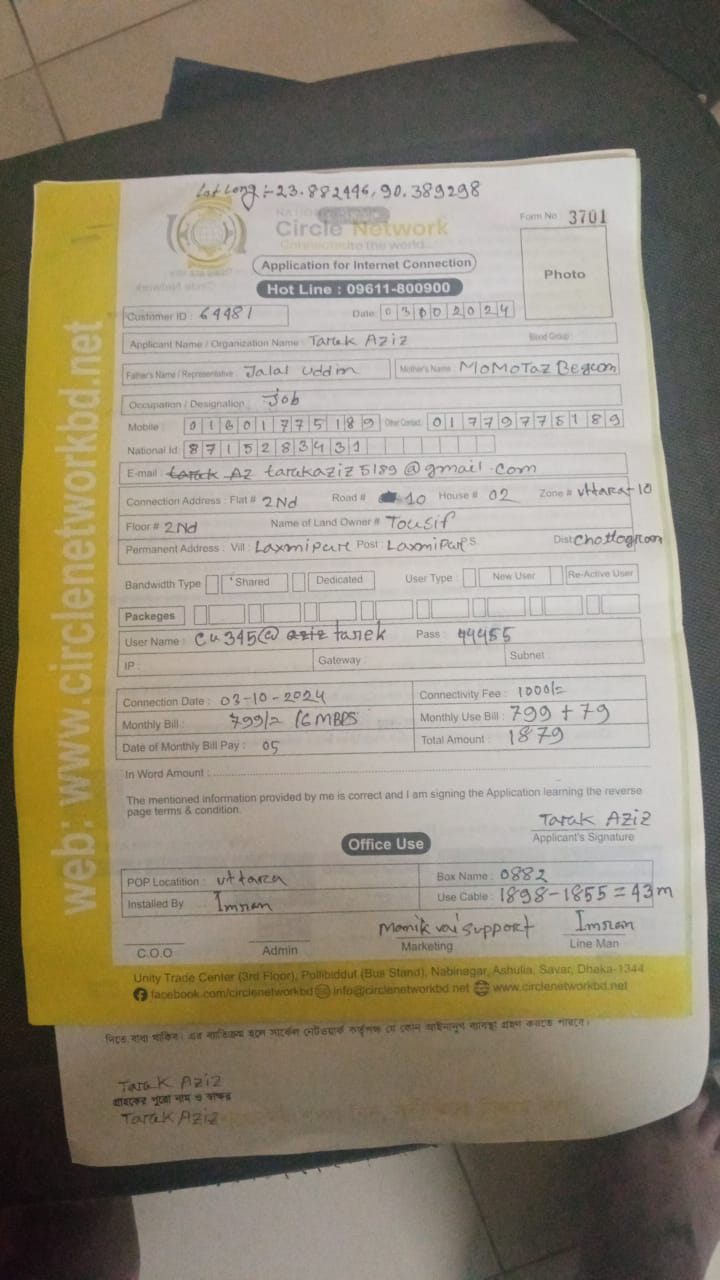 Lat Long :- 23.882446, 90.389298
Circle Network
Connected to the world...
Form No 3701
Application for Internet Connection
Photo
Hot Line : 09611-800900
Customer ID : 64481 Date: 03102024
Applicant Name / Organization Name : Tarak Aziz Blood Group :
Father's Name / Representative : Jalal Uddin Mother's Name : MoMoTaz Begom
Occupation / Designation : Job
Mobile : 01601775189 Other Contact : 01779775189
National Id: 8715283431
E-mail : tarak Az tarakaziz5189@gmail.com
Connection Address : Flat # 2Nd Road # 10 House # 02 Zone # Uttara-10
Floor # 2Nd Name of Land Owner # Tousif
Permanent Address : Vill : Post : P.S. Dist:
Bandwidth Type Shared Dedicated User Type : New User Re-Active User
Packeges
User Name : Pass : 44455
IP : Gateway : Subnet :
Connection Date : 03-10-2024 Connectivity Fee : 1000/=
Monthly Bill : 799/= MBPS Monthly Use Bill : 799 + 79
Date of Monthly Bill Pay : 05 Total Amount : 1879
In Word Amount :
The mentioned information provided by me is correct and I am signing the Application learning the reverse
page terms & condition.
Tarak Aziz
Applicant's Signature
Office Use
POP Locatition : Uttara Box Name : 0882
Installed By Imran Use Cable : 1898-1855 = 43m
Manik vai support Imran
C.O.O Admin Marketing Line Man
Unity Trade Center (3rd Floor), Pollibiddut (Bus Stand), Nabinagar, Ashulia, Savar, Dhaka-1344
facebook.com/circlenetworkbd info@circlenetworkbd.net www.circlenetworkbd.net
web: www.circlenetworkbd.net
দিতে বাধ্য থাকিব। এর ব্যতিক্রম হলে সার্কেল নেটওয়ার্ক কর্তৃপক্ষ যে কোন আইনানুগ ব্যবস্থা গ্রহণ করতে পারবে।
Tarak Aziz
গ্রাহকের পুরো নাম ও স্বাক্ষর
Tarak Aziz